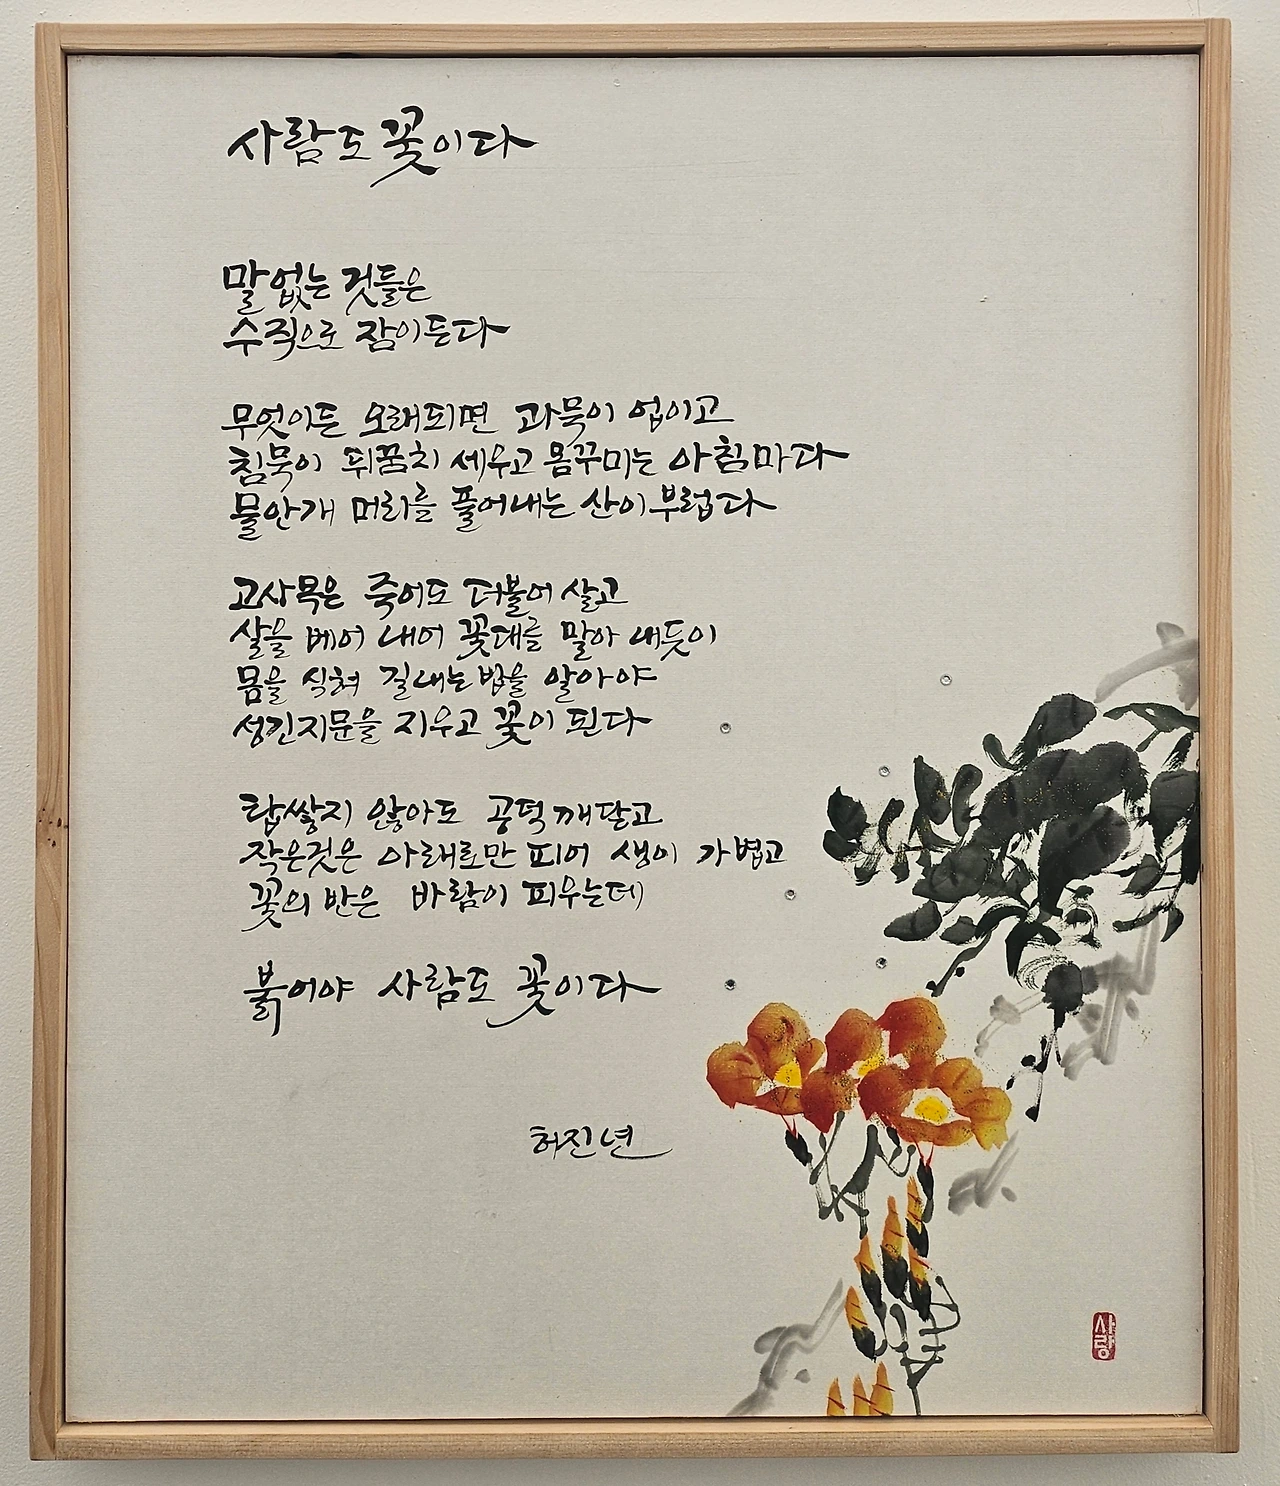 사람도 꽃이다
말없는 것들은
수직으로 잠이든다
무엇이든 오래되면 과묵이 업이고
침묵이 뒤꿈치 세우고 몸꾸미는 아침마다
물안개 머리를 풀어내는 산이부럽다
고사목은 죽어도 더불어 살고
살을 베어 내어 꽃대를 말아 내듯이
몸을 식혀 길내는법을 알아야
성긴지문을 지우고 꽃이 된다
탑쌓지 않아도 공덕깨달고
작은것은 아래로만 피어 생이 가볍고
꽃의 반은 바람이 피우는데
붉어야 사람도 꽃이다
허진년
사랑